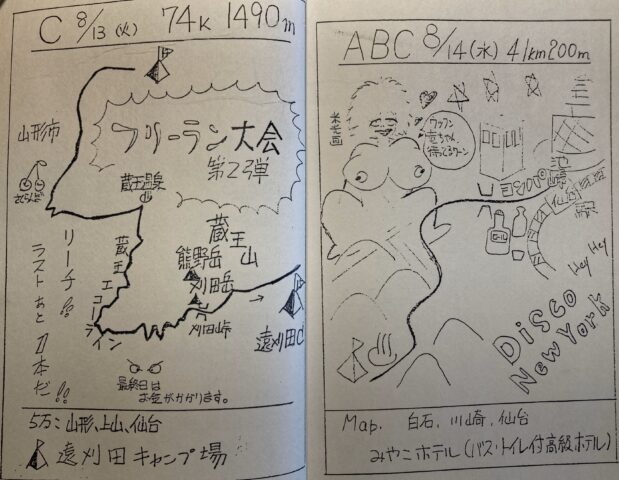 C 8/13 (火) 74k 1490m
山形市
フリーラン大会
第2弾
蔵王温泉
蔵王エコーライン
蔵王山
熊野岳
刈田岳
刈田峠
遠刈田C
リーチ!!
ラストあと1本だ!!
最終日は
お金がかかります。
5万:山形、上山、仙台
遠刈田キャンプ場
ABC 8/14 (水) 41km 200m
ワッフン
竜ちゃん
待ってるワーン
仙台
Hey Hey
DISCO
New York
Map. 白石、川崎、仙台
みやこホテル(バス・トイレ付高級ホテル)